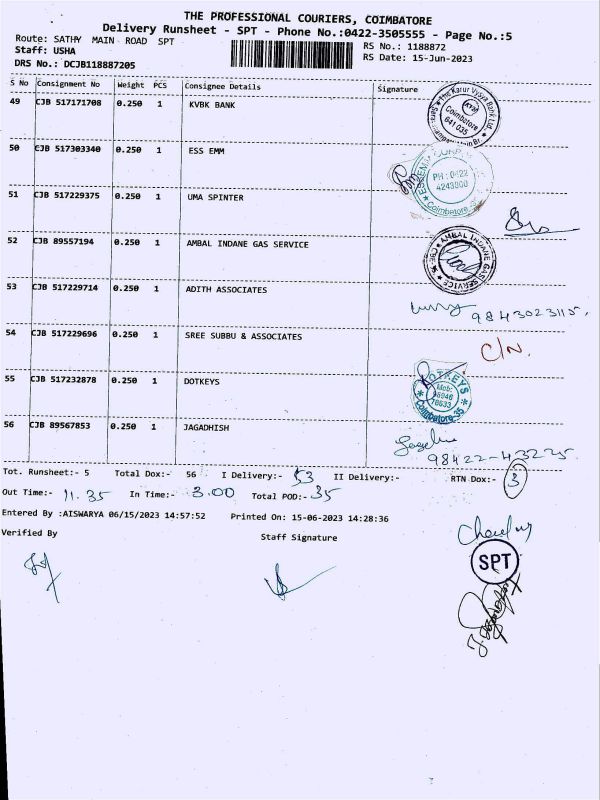 THE PROFESSIONAL COURIERS, COIMBATORE
Delivery Runsheet - SPT - Phone No.:0422-3505555 - Page No.:5
Route: SATHY MAIN ROAD SPT
RS No.: 1188872
Staff: USHA
RS Date: 15-Jun-2023
DRS No.: DCJB118887205
S No Consignment No Weight PCS Consignee Details Signature
49 CJB 517171708 0.250 1 KVBK BANK
The Karur Vysya Bank Ltd. KVB Coimbatore 641 035
50 CJB 517303340 0.250 1 ESS EMM
PH : 0422 4243800 Coimbatore
51 CJB 517229375 0.250 1 UMA SPINTER
52 CJB 89557194 0.250 1 AMBAL INDANE GAS SERVICE
AMBAL INDANE GAS SERVICE CBE
53 CJB 517229714 0.250 1 ADITH ASSOCIATES
9843023115.
54 CJB 517229696 0.250 1 SREE SUBBU & ASSOCIATES C/N.
55 CJB 517232878 0.250 1 DOTKEYS
DOTKEYS Mob: Coimbatore-35
56 CJB 89567853 0.250 1 JAGADHISH
98422-43225
Tot. Runsheet:- 5 Total Dox:- 56 I Delivery:- 53 II Delivery:- RTN Dox:- 3
Out Time:- 11.35 In Time:- 3.00 Total POD:- 35
Entered By :AISWARYA 06/15/2023 14:57:52 Printed On: 15-06-2023 14:28:36
Verified By Staff Signature
SPT